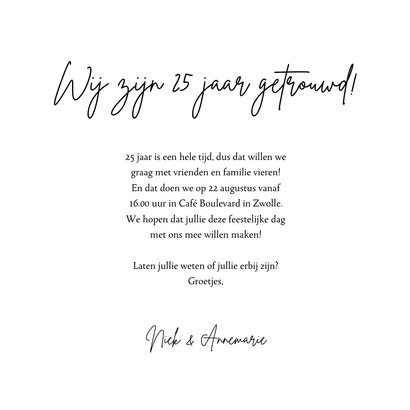 Wij zijn 25 jaar getrouwd!
25 jaar is een hele tijd, dus dat willen we
graag met vrienden en familie vieren!
En dat doen we op 22 augustus vanaf
16.00 uur in Café Boulevard in Zwolle.
We hopen dat jullie deze feestelijke dag
met ons mee willen maken!
Laten jullie weten of jullie erbij zijn?
Groetjes,
Niek & Annemarie